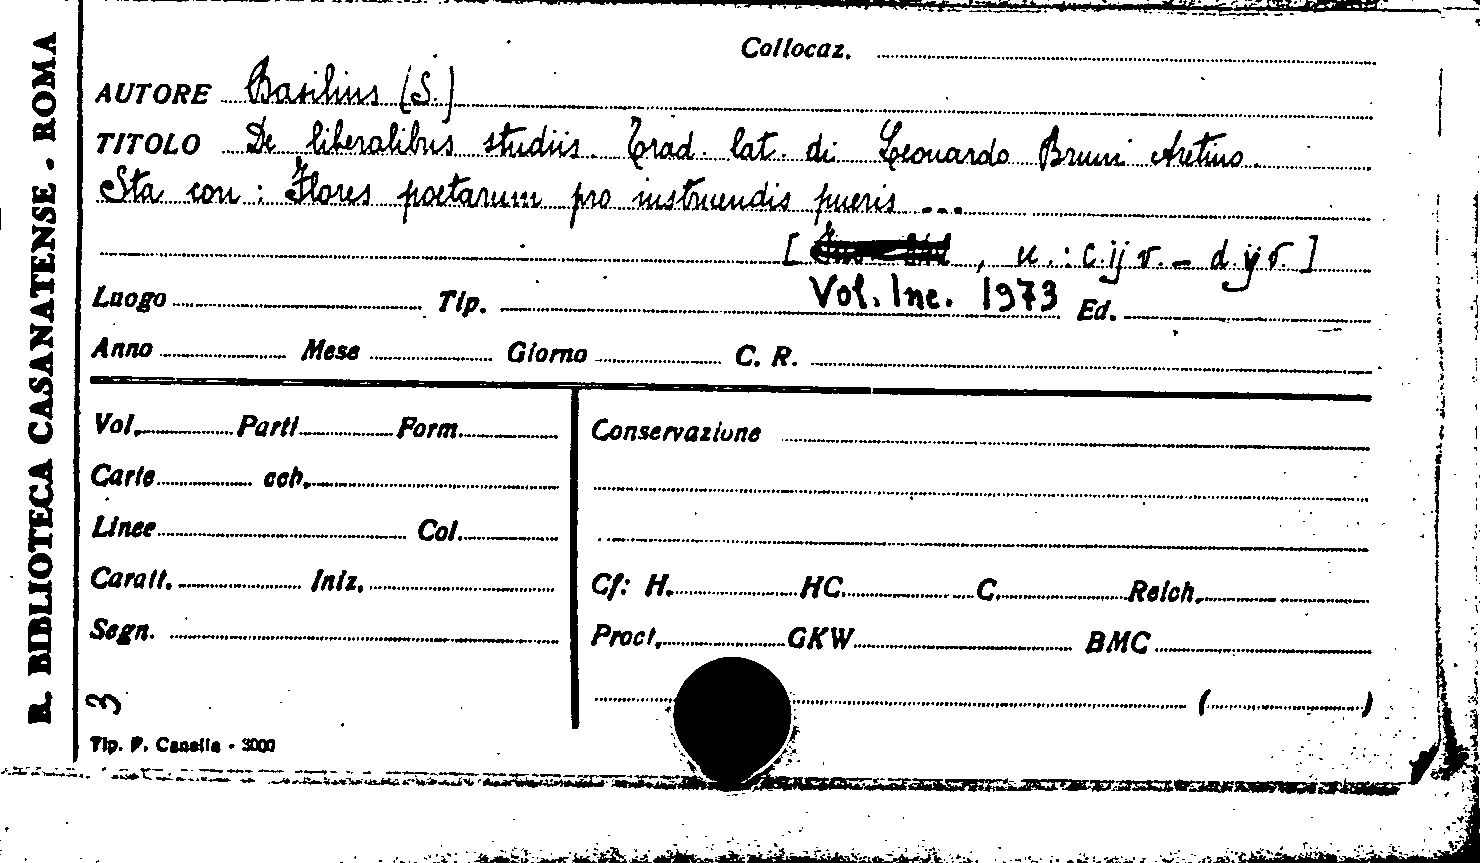 R. BIBLIOTECA CASANATENSE - ROMA
Collocaz.
AUTORE Basilius (S.)
TITOLO De liberalibus studiis. Trad. lat. di Leonardo Bruni Aretino.
Sta con: Flores poetarum pro instruendis pueris ...
[ , u.: c.ij v. - d.ij v. ]
Vol. Inc. 1973
Luogo Tip. Ed.
Anno Mese Giorno C. R.
Vol. Parti Form. Conservazione
Carte cch.
Linee Col.
Caratt. Iniz. Cf: H. HC. C. Reich.
Segn. Proct. GKW BMC
3 ( )
Tip. F. Canella - 3000